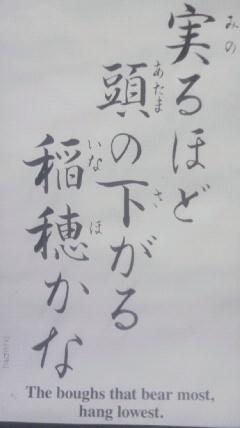 実るほど
頭の下がる
稲穂かな
みの
あたま
さ
いな
ほ
The boughs that bear most,
hang lowest.